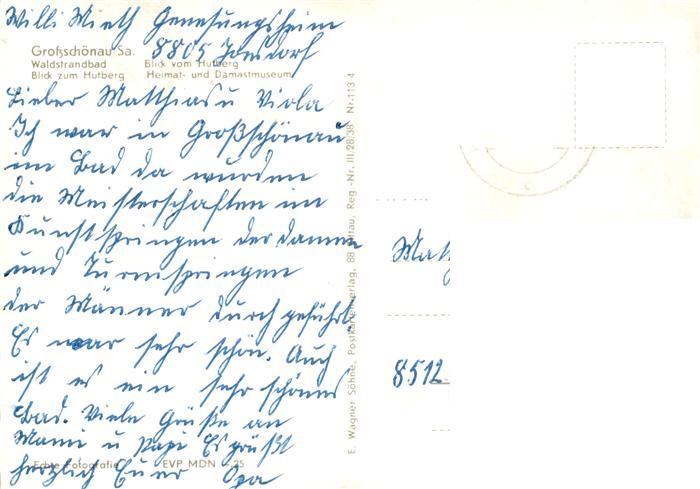 Willi Mieth Genesungsheim
8805 Jonsdorf
Großschönau Sa.
Waldstrandbad Blick vom Hutberg
Blick zum Hutberg Heimat- und Damastmuseum
Lieber Matthias u Viola
Ich war in Großschönau
im Bad da wurden
die Meisterschaften im
Kunstspringen der Damen
und Turmspringen
der Männer durchgeführt.
Es war sehr schön. Auch
ist es ein sehr schönes
Bad. Viele Grüße an
Mami u Papi Es grüßt
herzlich Euer Opa
Echte Fotografie EVP MDN -.25
E. Wagner Söhne, Postkartenverlag, 88 Zittau, Reg.-Nr. III/28/38 Nr. 113 4
Matt
8512